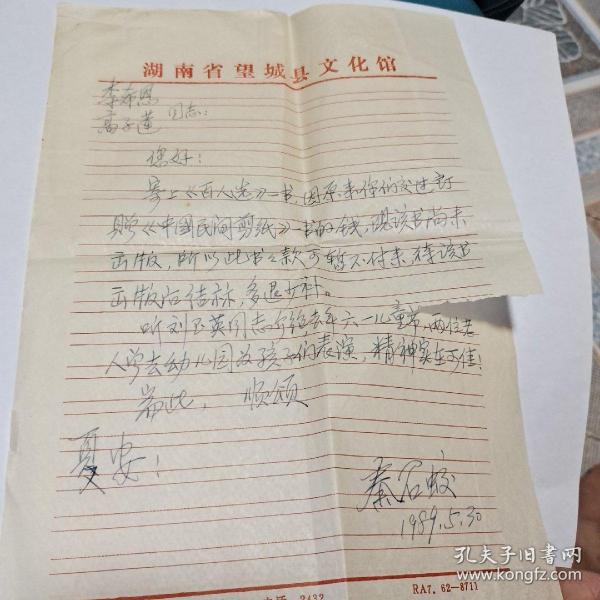 湖南省望城县文化馆
李希恩
高子莲 同志:
您好!
寄上《百人出》一书,因原来你们交过订
购《中国民间剪纸》一书的钱,现该书尚未
出版,所以此书之款可暂不付来,待该书
出版后结林,多退少补。
听刘玉英同志介绍去年六一儿童节,两位老
人曾去幼儿园为孩子们表演,精神实在可佳!
崙此,顺颂
夏安!
秦石蛟
1989.5.30
电话 2432
RA7. 62-8711
孔夫子旧书网
www.kongfz.com